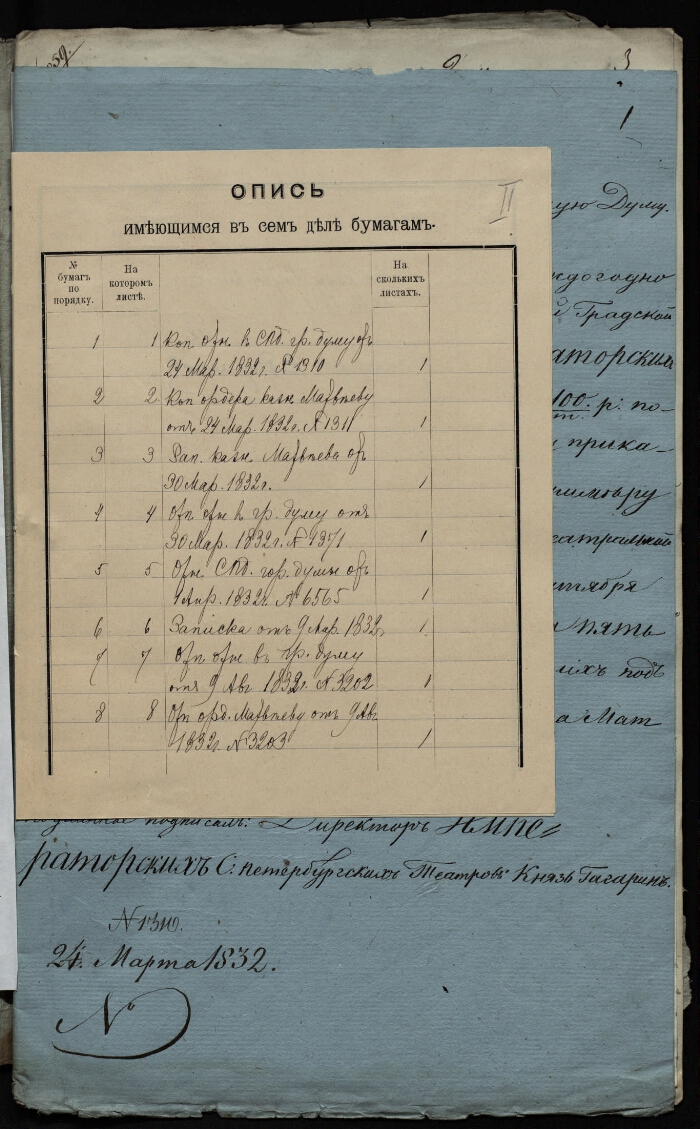 859.
3
1
ОПИСЬ
II
имѣющимся въ семъ дѣлѣ бумагамъ.
№ бумагъ по порядку.
На которомъ листѣ.
На сколькихъ листахъ.
1 1 Коп. отн. в СПб. гр. думу отъ
24 Мар. 1832 г. № 1310 1
2 2 Коп ордера казн. Матвѣеву
отъ 24 Мар. 1832 г. № 1311 1
3 3 Рап. казн. Матвѣева отъ
30 Мар. 1832 г. 1
4 4 Отп. отн. в гр. думу отъ
30 Мар. 1832 г. № 1371 1
5 5 Отн. СПб. гор. думы отъ
1 Апр. 1832 г. № 6565 1
6 6 Записка отъ 9 Апр. 1832 г. 1
7 7 Отп. отн. въ гр. думу
отъ 9 Авг. 1832 г. № 3202 1
8 8 Отп. орд. Матвѣеву отъ 9 Авг.
1832 г. № 3203 1
ую Думу.
ждогодно
й Градской
аторскихъ
100. р: по-
прика-
атральной
нтября
пять
ихъ подъ
а Мат
подписалъ: Директоръ Импе=
раторскихъ С: петербургскихъ Театровъ Князь Гагаринъ.
№ 1310.
24. Марта 1832.
№